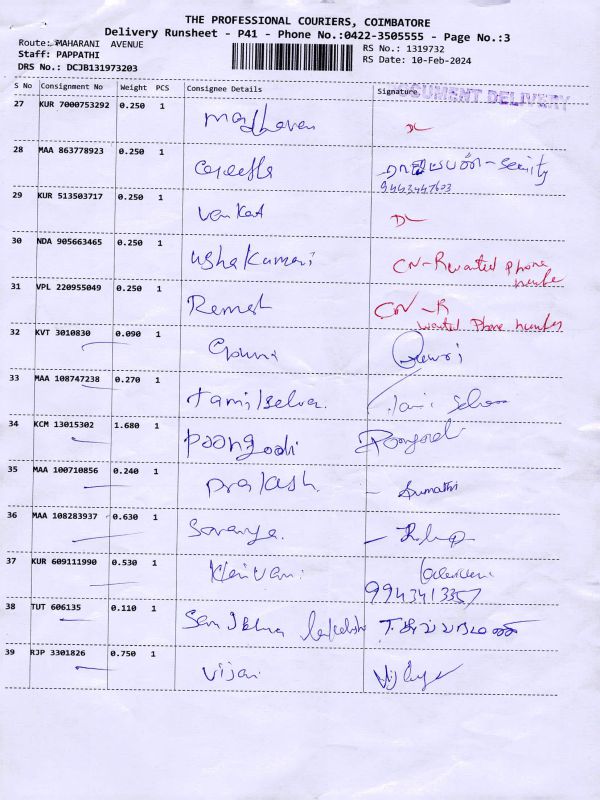 THE PROFESSIONAL COURIERS, COIMBATORE
Delivery Runsheet - P41 - Phone No.:0422-3505555 - Page No.:3
Route: MAHARANI AVENUE
Staff: PAPPATHI
DRS No.: DCJB131973203
RS No.: 1319732
RS Date: 10-Feb-2024
S No Consignment No Weight PCS Consignee Details Signature
DOCUMENT DELIVERY
27 KUR 7000753292 0.250 1 madhavan DL
28 MAA 863778923 0.250 1 - Security
9443447603
29 KUR 513503717 0.250 1 Venkat DL
30 NDA 905663465 0.250 1 Ushakumari CN-R wanted phone
number
31 VPL 220955049 0.250 1 Ramesh CN-R
wanted Phone number
32 KVT 3010830 0.090 1 Gowri Gowri
33 MAA 108747238 0.270 1 tamilselvan
34 KCM 13015302 1.680 1 poongodi Poongodi
35 MAA 100710856 0.240 1 prakash - Sumathi
36 MAA 108283937 0.630 1 Saranya.
37 KUR 609111990 0.530 1 kalaivani
9943413357
38 TUT 606135 0.110 1
39 RJP 3301826 0.750 1 Vijay